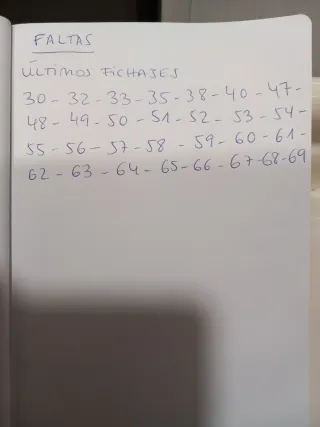 FALTAS
ÚLTIMOS FICHAJES
30 - 32 - 33 - 35 - 38 - 40 - 47 -
48 - 49 - 50 - 51 - 52 - 53 - 54 -
55 - 56 - 57 - 58 - 59 - 60 - 61 -
62 - 63 - 64 - 65 - 66 - 67 - 68 - 69